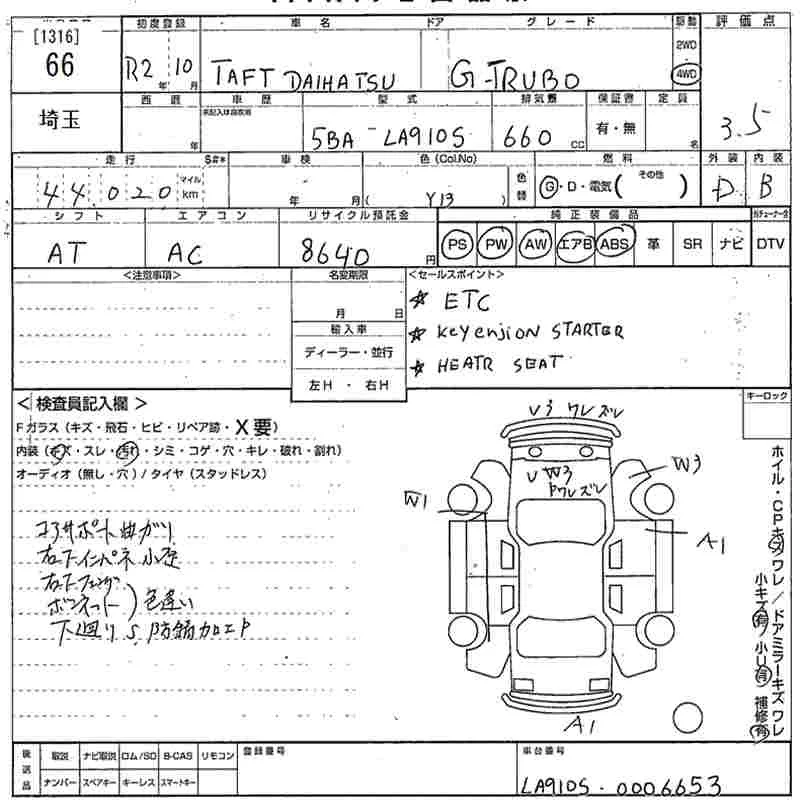 [1316]
66
埼玉
初度登録 車名 ドア グレード 駆動 評価点
R2年 10月 TAFT DAIHATSU G-TRUBO 2WD 4WD 3.5
西暦 車歴 型式 排気量 保証書 定員
年 未記入は自家用 5BA-LA910S 660 CC 有・無 名
走行 S#* 車検 色(Col.No) 燃料 外装 内装
44.020 マイル km 年 月 ( Y13 ) 色替 G・D・電気( その他 ) D B
シフト エアコン リサイクル預託金 純正装備品
AT AC 8640円 PS PW AW エアB ABS 革 SR ナビ DTV
<注意事項> 名変期限 <セールスポイント>
月 日 ☆ ETC
輸入車 ☆ KeyenjioN STARTER
ディーラー・並行 ☆ HEATR SEAT
左H ・ 右H
<検査員記入欄> キーロック
Fガラス(キズ・飛石・ヒビ・リペア跡・X要)
内装(キズ・スレ・汚れ・シミ・コゲ・穴・キレ・破れ・割れ)
オーディオ(無し・穴)/タイヤ(スタッドレス)
コアサポート曲ガリ
右下インパネ小歪
ボンネット 色違い
下廻りS 防錆加工P
Uろ ワレズレ
U W3
Pワレズレ
W3
W1
A1
A1
ホイル・CPキズワレ/ドアミラーキズワレ
小キズ有 小U有 補修有
後送品 取説 ナビ取説 ロム/SD B-CAS リモコン 登録番号 車台番号
ナンバー スペアキー キーレス スマートキー LA910S-0006653